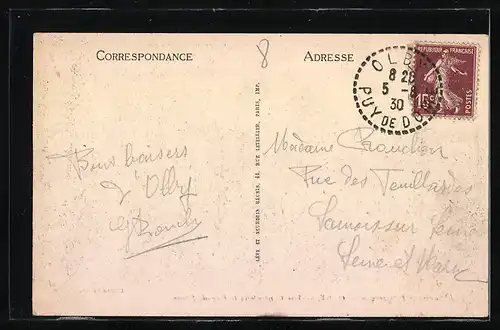 CORRESPONDANCE
8
ADRESSE
OLBY
8 20
5 -
30
PUY DE DOME
REPUBLIQUE FRANÇAISE
15c
POSTES
Bons baisers
d'Olby
LÉVY ET NEURDEIN RÉUNIS, 44, RUE LETELLIER, PARIS, IMP.
Madame
Rue des Feuillardes
Samois sur Seine
Seine et Marne